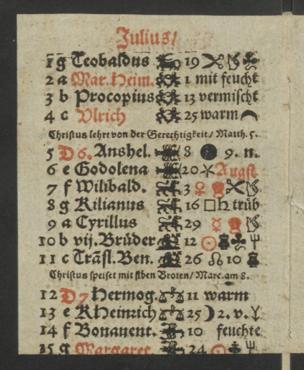 Julius/
1 g Teobaldus 19
2 a Mar. Heim. 1 mit feucht
3 b Procopius 13 vermischt
4 c Vlrich 25 warm
Christus lehrt von der Gerechtigkeit/ Matth. 5.
5 D 6. Anshel. 8 9. n.
6 e Godolena 20 Augst
7 f Wilibald. 3
8 g Kilianus 16 □♄ trüb
9 a Cyrillus 29 ☿
10 b vij. Brüder 12 ☉
11 c Trãsl. Ben. 26 ☊ 10
Christus speiset mit sibẽ Broten/ Marc. am 8.
12 D 7 Hermog. ♎ 11 warm
13 e KHeinrich ♎ 25 ☽ 2. v.
14 f Bonauent. 10 feuchte
15 g Margaret. 24